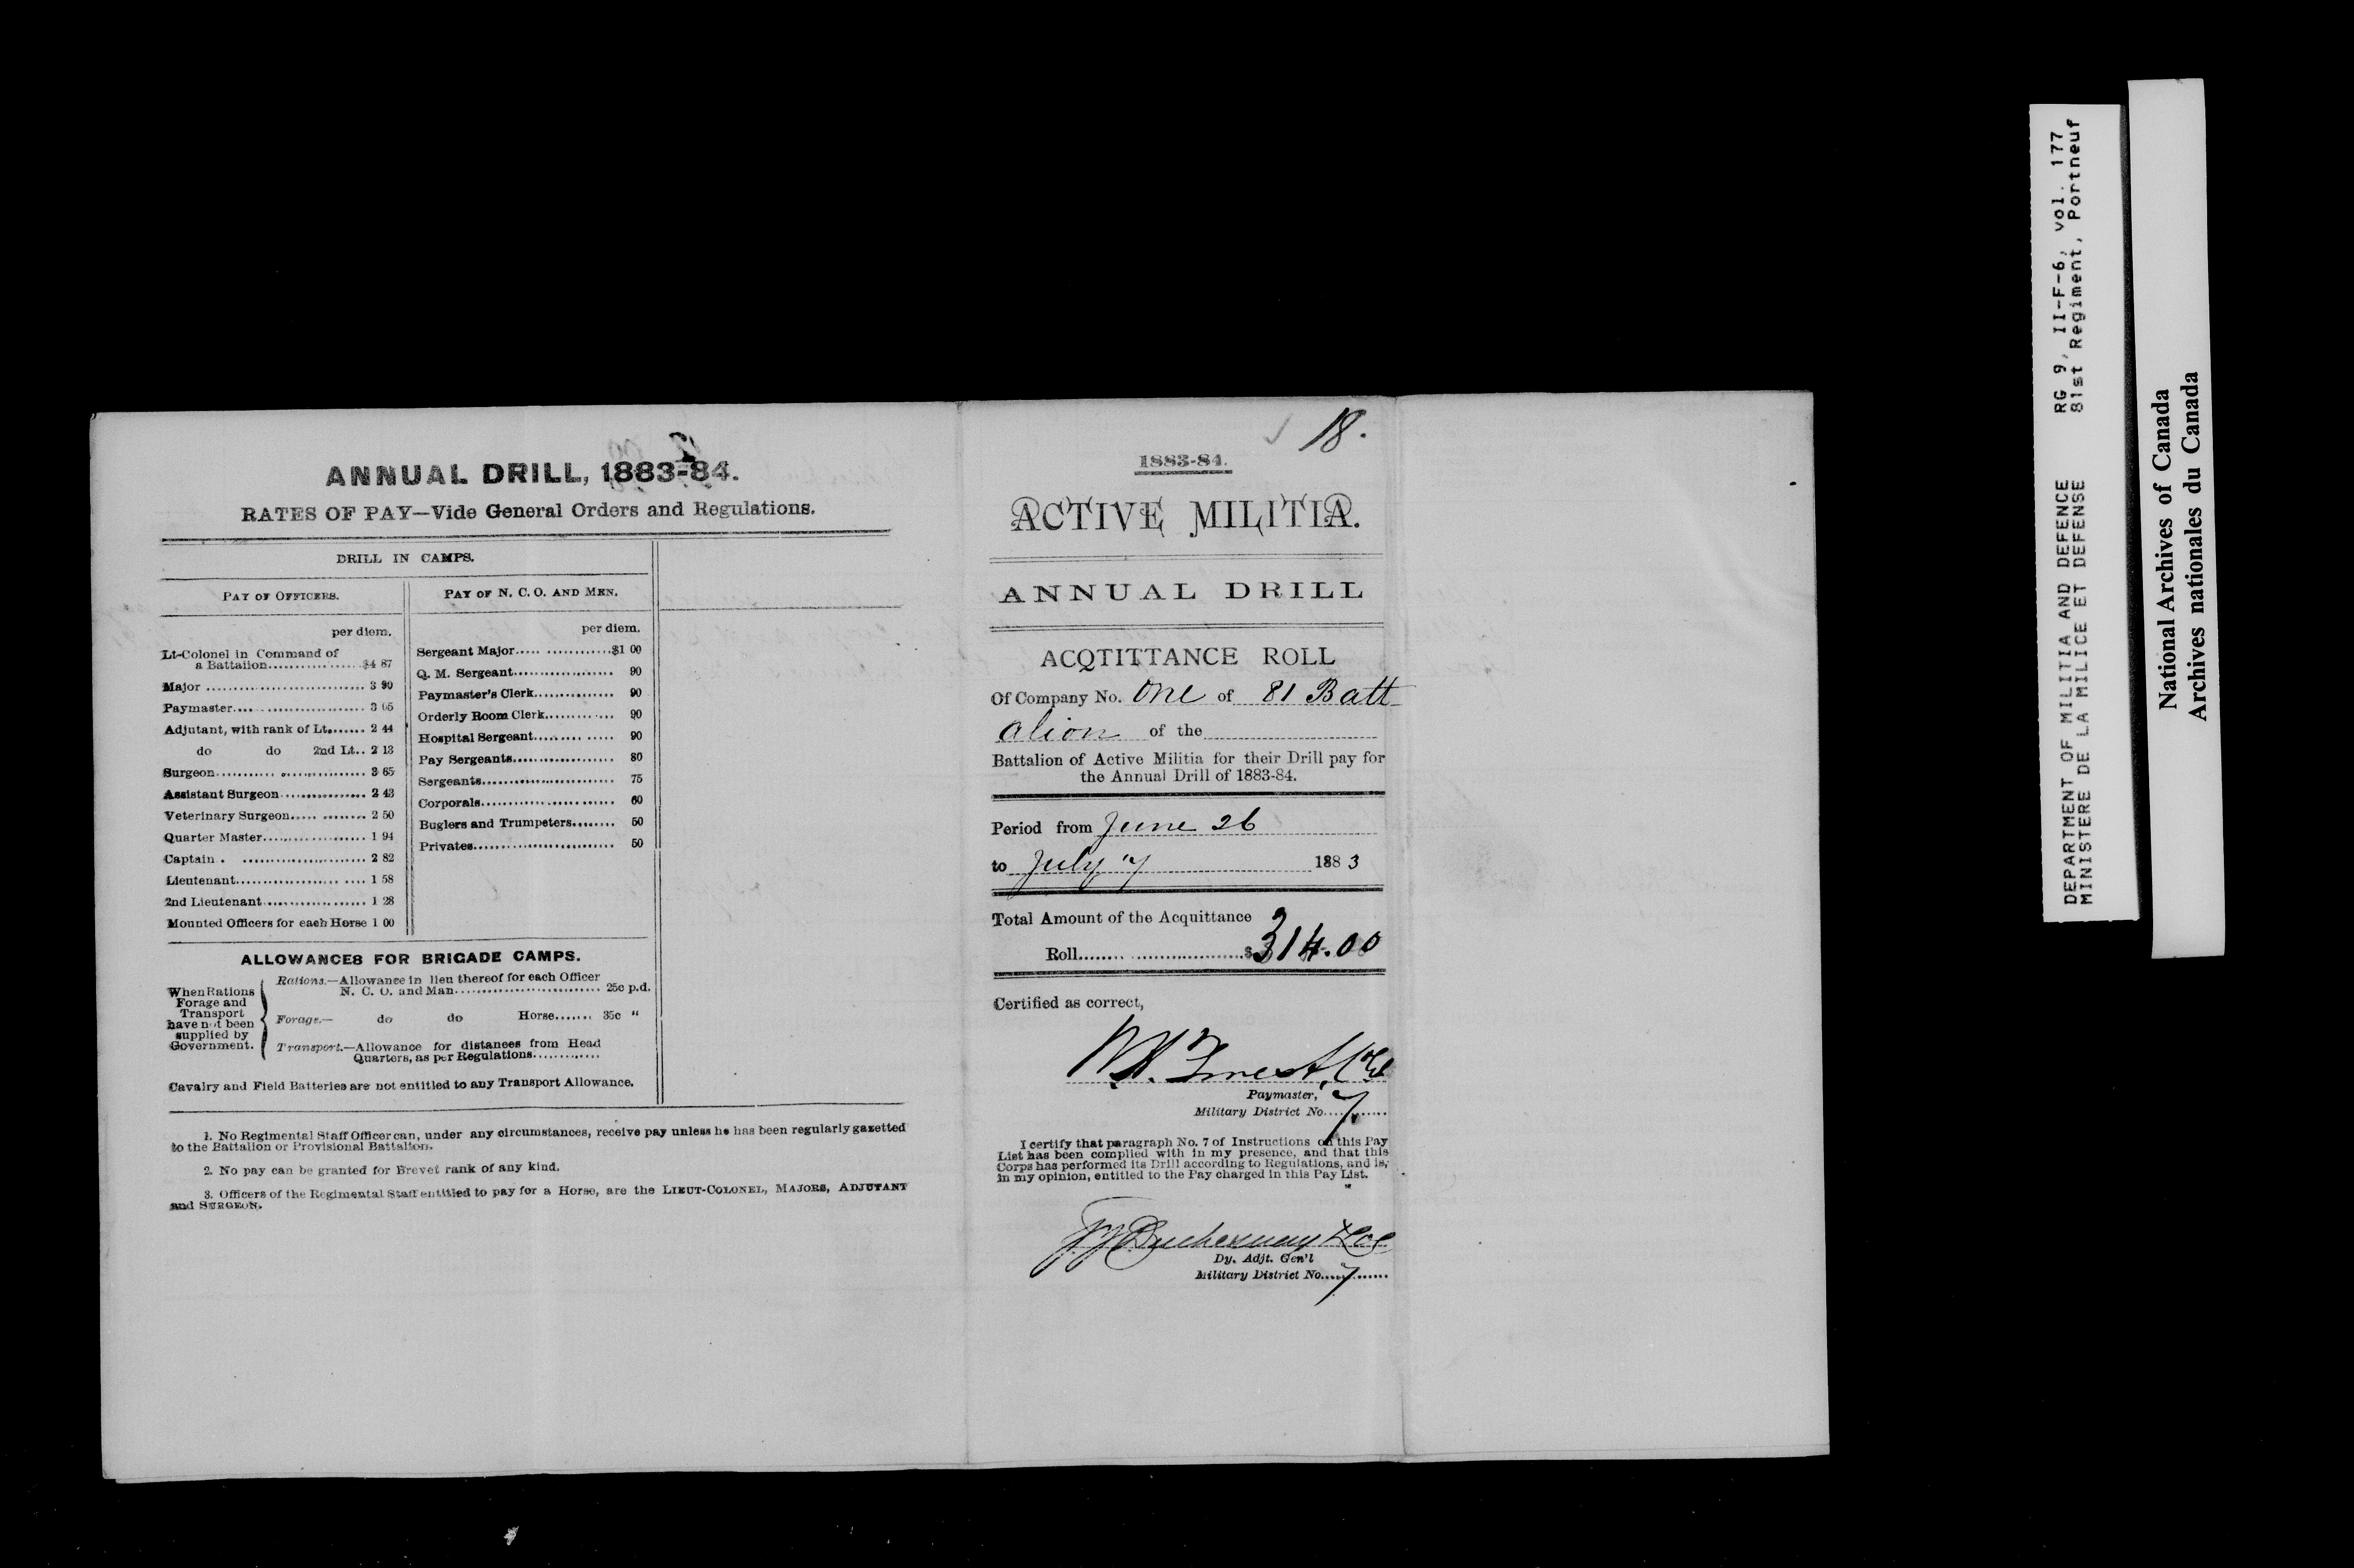 ANNUAL DRILL, 1883-84.
RATES OF PAY—Vide General Orders and Regulations.
DRILL IN CAMPS.
PAY OF OFFICERS.
per diem.
Lt-Colonel in Command of
a Battalion..................$4 87
Major ............................ 3 90
Paymaster........................ 3 05
Adjutant, with rank of Lt....... 2 44
do do 2nd Lt.. 2 13
Surgeon........................... 3 65
Assistant Surgeon................ 2 43
Veterinary Surgeon..... ........ 2 50
Quarter Master................... 1 94
Captain . ....................... 2 82
Lieutenant................... .... 1 58
2nd Lieutenant................... 1 28
Mounted Officers for each Horse 1 00
PAY OF N. C. O. AND MEN.
per diem.
Sergeant Major..... ............$1 00
Q. M. Sergeant................... 90
Paymaster's Clerk............... 90
Orderly Room Clerk............. 90
Hospital Sergeant......... ...... 90
Pay Sergeants................... 80
Sergeants......................... 75
Corporals......................... 60
Buglers and Trumpeters........ 50
Privates........................... 50
ALLOWANCES FOR BRIGADE CAMPS.
When Rations
Forage and
Transport
have not been
supplied by
Government.
Rations.—Allowance in lieu thereof for each Officer
N. C. O. and Man............................ 25c p.d.
Forage.— do do Horse....... 35c "
Transport.—Allowance for distances from Head
Quarters, as per Regulations.............
Cavalry and Field Batteries are not entitled to any Transport Allowance.
1. No Regimental Staff Officer can, under any circumstances, receive pay unless he has been regularly gazetted
to the Battalion or Provisional Battalion.
2. No pay can be granted for Brevet rank of any kind.
3. Officers of the Regimental Staff entitled to pay for a Horse, are the LIEUT-COLONEL, MAJORS, ADJUTANT
and SURGEON.
18.
1883-84.
ACTIVE MILITIA.
ANNUAL DRILL
ACQTITTANCE ROLL
Of Company No. One of 81 Batt
alion of the
Battalion of Active Militia for their Drill pay for
the Annual Drill of 1883-84.
Period from June 26
to July 7 1883
Total Amount of the Acquittance
Roll..............................$314.00
Certified as correct,
Paymaster,
Military District No....7......
I certify that paragraph No. 7 of Instructions on this Pay
List has been complied with in my presence, and that this
Corps has performed its Drill according to Regulations, and is,
in my opinion, entitled to the Pay charged in this Pay List.
Duchesnay
Dy. Adjt. Gen'l
Military District No....7......
DEPARTMENT OF MILITIA AND DEFENCE RG 9, II-F-6, vol. 177
MINISTERE DE LA MILICE ET DEFENSE 81st Regiment, Portneuf
National Archives of Canada
Archives nationales du Canada